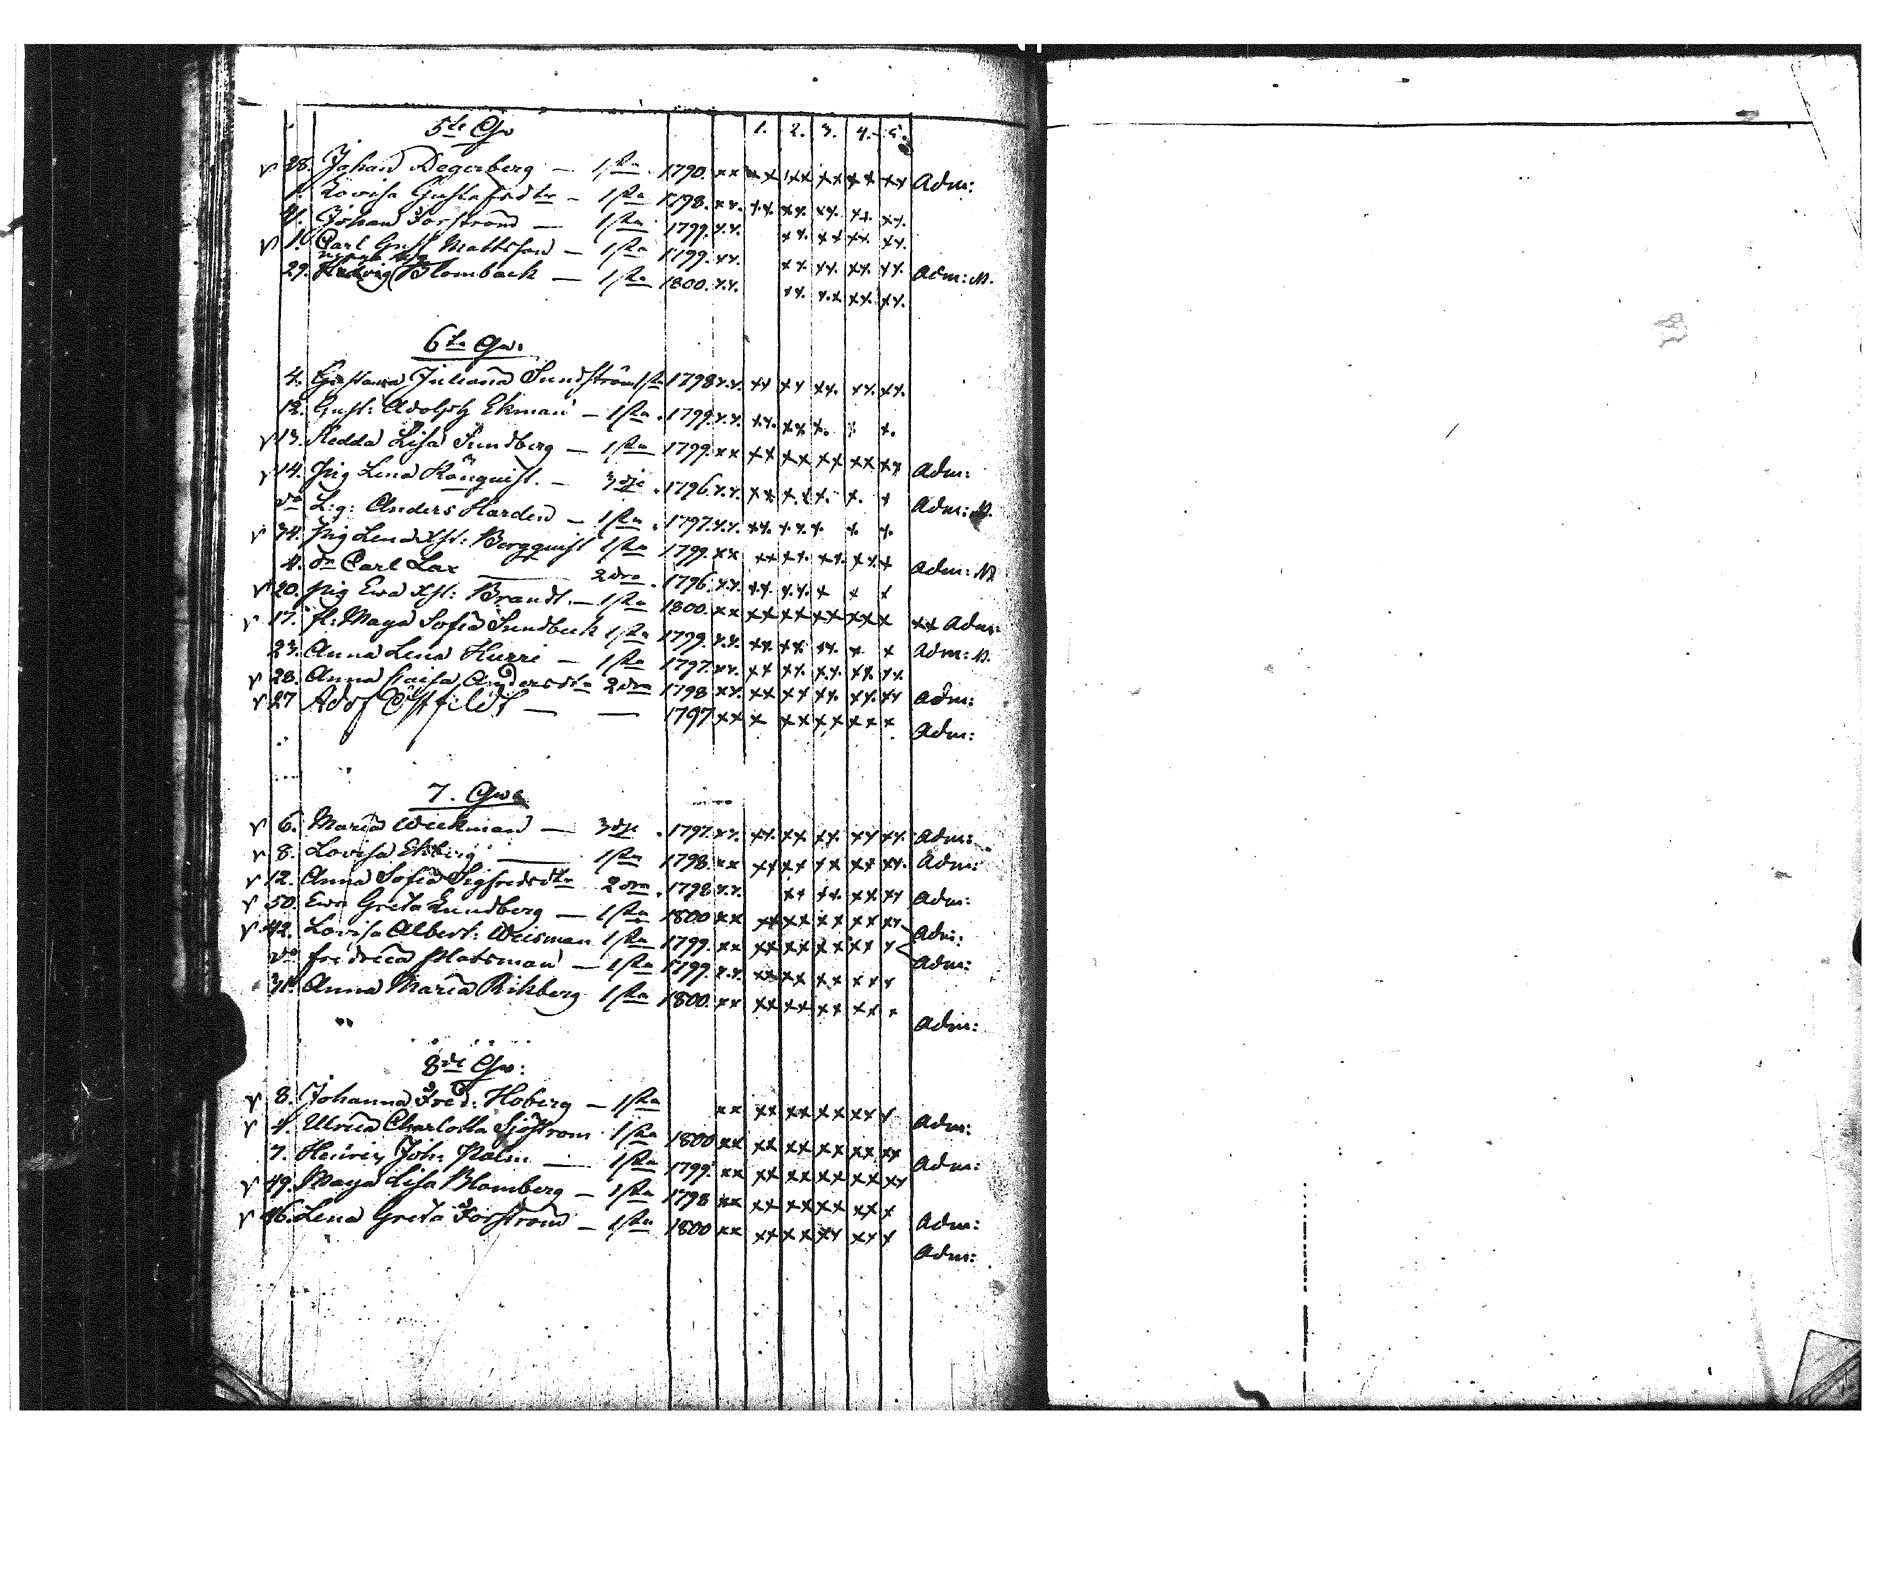 5te Qv 1. 2. 3. 4. 5.
v 28. Johan Degerberg — 1sta 1790. xx xx xx xx xx xx Adm:
1. Lovisa Gustafsdtr — 1sta 1798. xx. xx. xx. xx. xx. xx.
21. Johan Forström — 1sta 1799. xx. xx. xx xx. xx.
v 1. Carl Gust Mattsson — 1sta 1799. xx. xx. xx. xx. xx. Adm: N.
29. Hedvig Blomback — 1sta 1800. xx. xx. xx. xx. xx.
6te Qv.
4. Gustava Juliana Sundström 1sta 1798 xx. xx xx xx. xx. xx.
12. Gust: Adolph Ekman — 1sta. 1799. xx. xx. xx x. x x.
v 13. Hedda Lisa Sundberg — 1sta 1799. xx xx xx xx xx xx Adm:
v 14. Pig Lena Rönquist. — 3dje. 1796. xx. xx x. xx. x. x Adm: N.
do L:g: Anders Harden — 1sta. 1797. xx. xx. x. x. x. x. x.
v 34. Pig Lena Bergquist 1sta 1799. xx xx xx. xx. xx x Adm: N
4. dr Carl Lax — 2dra. 1796. xx. xx. xx. x x x
v 20. Pig Ewa Brandt. — 1sta 1800. xx xx xx xx xx x xx Adm:
v 17. Maja Sofia Sundbeck 1sta 1799. xx. xx. xx. xx. x x Adm: N.
23. Anna Lena Kurri — 1sta 1797. xx. xx xx. xx. xx. xx.
v 28. Anna Caisa Andersdtr 2dra 1798 xx. xx xx xx. xx. xx Adm:
v 27 Adof Östfeldt — — 1797 xx x xx xx xx x Adm:
7. Qv
v 6. Maria Weckman — 3dje. 1797. xx. xx. xx xx. xx xx. Adm:
v 8. Lovisa Ekberg — 1sta 1798. xx xx xx xx xx xx. Adm:
v 12. Anna Sofia Sigfredsdtr 2dra. 1798 xx. xx xx. xx xx Adm:
v 50. Ewa Greta Lundberg — 1sta 1800 xx xx xx xx xx xx Adm:
v 42. Lovisa Albert: Weisman 1sta 1799. xx xx xx xx xx x Adm:
do Fredrica Platsman — 1sta 1799. xx. xx xx xx xx x
31. Anna Maria Rikberg 1sta 1800. xx xx xx xx xx x Adm:
8de Qv:
v 8. Johanna Fred: Hoberg — 1sta xx xx xx xx xx x Adm:
v 4. Ulrica Charlotta Sjöström 1sta 1800 xx xx xx xx xx xx Adm:
7. Henric Joh: Palm — 1sta 1799. xx xx xx xx xx xx
v 49. Maja Lisa Blomberg — 1sta 1798 xx xx xx xx xx x Adm:
v 46. Lena Greta Forström — 1sta 1800 xx xx xx xx xx x Adm: